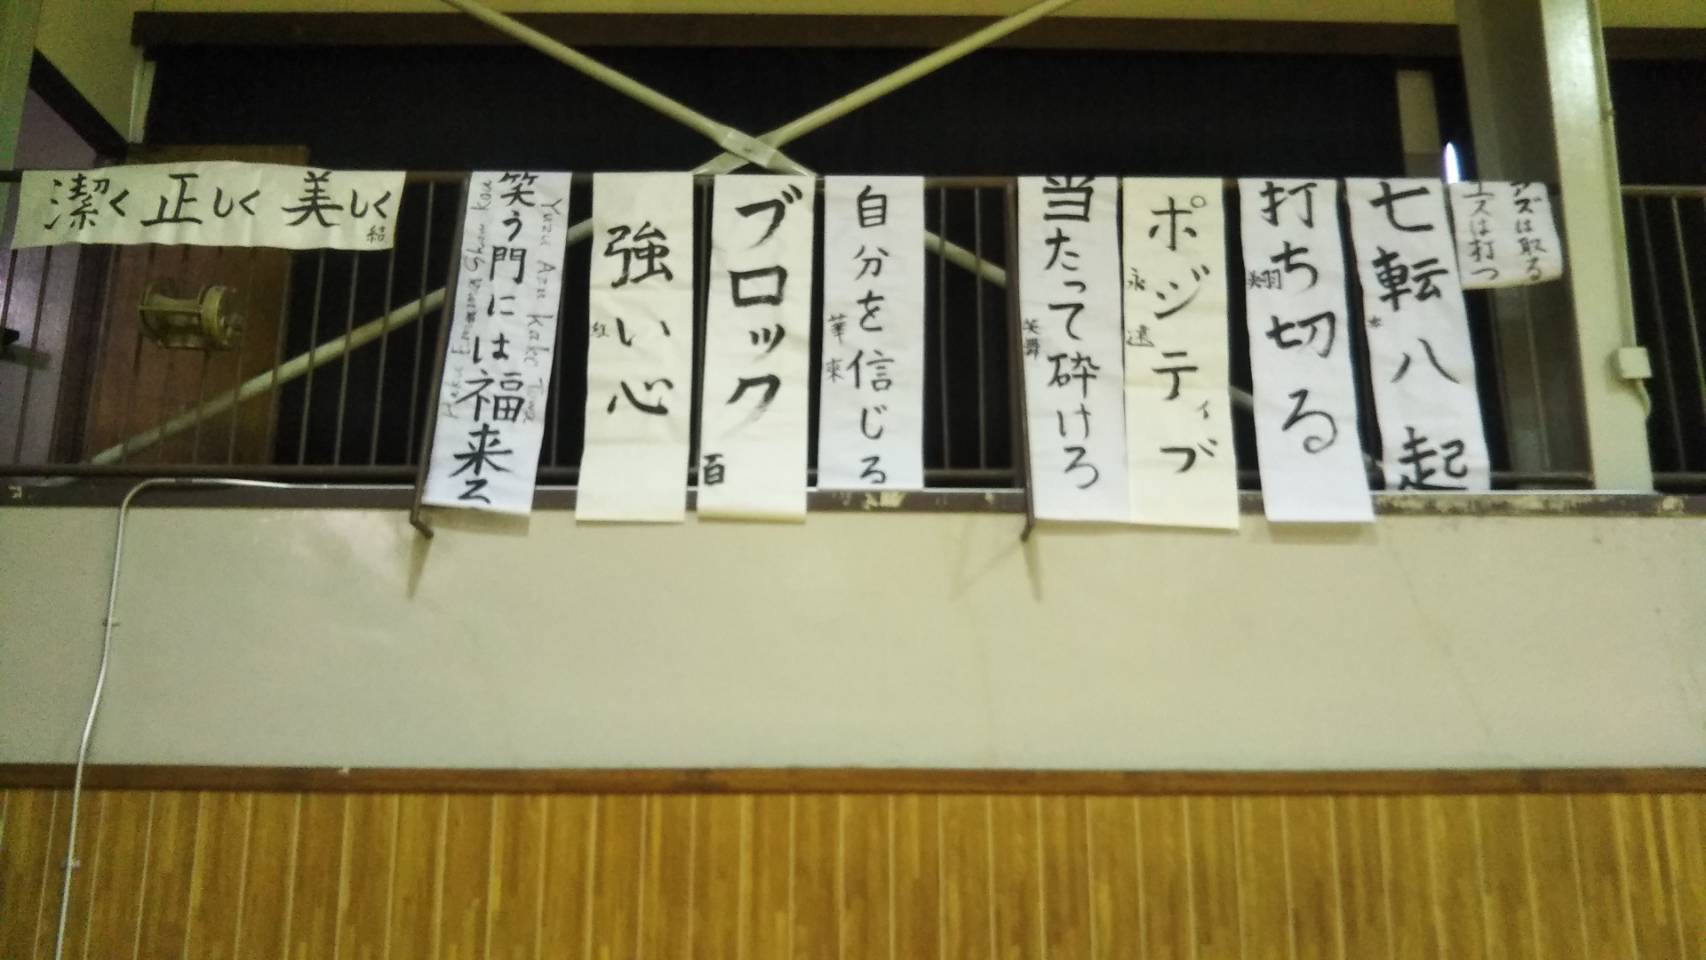 潔く 正しく 美しく
結
笑う門には福来る
Yuzu Azu Kako
強い心
紅
ブロック
百
自分を信じる
華来
当たって砕けろ
笑舞
ポジティブ
永遠
打ち切る
翔
七転八起
ズは取る
エースは打つ